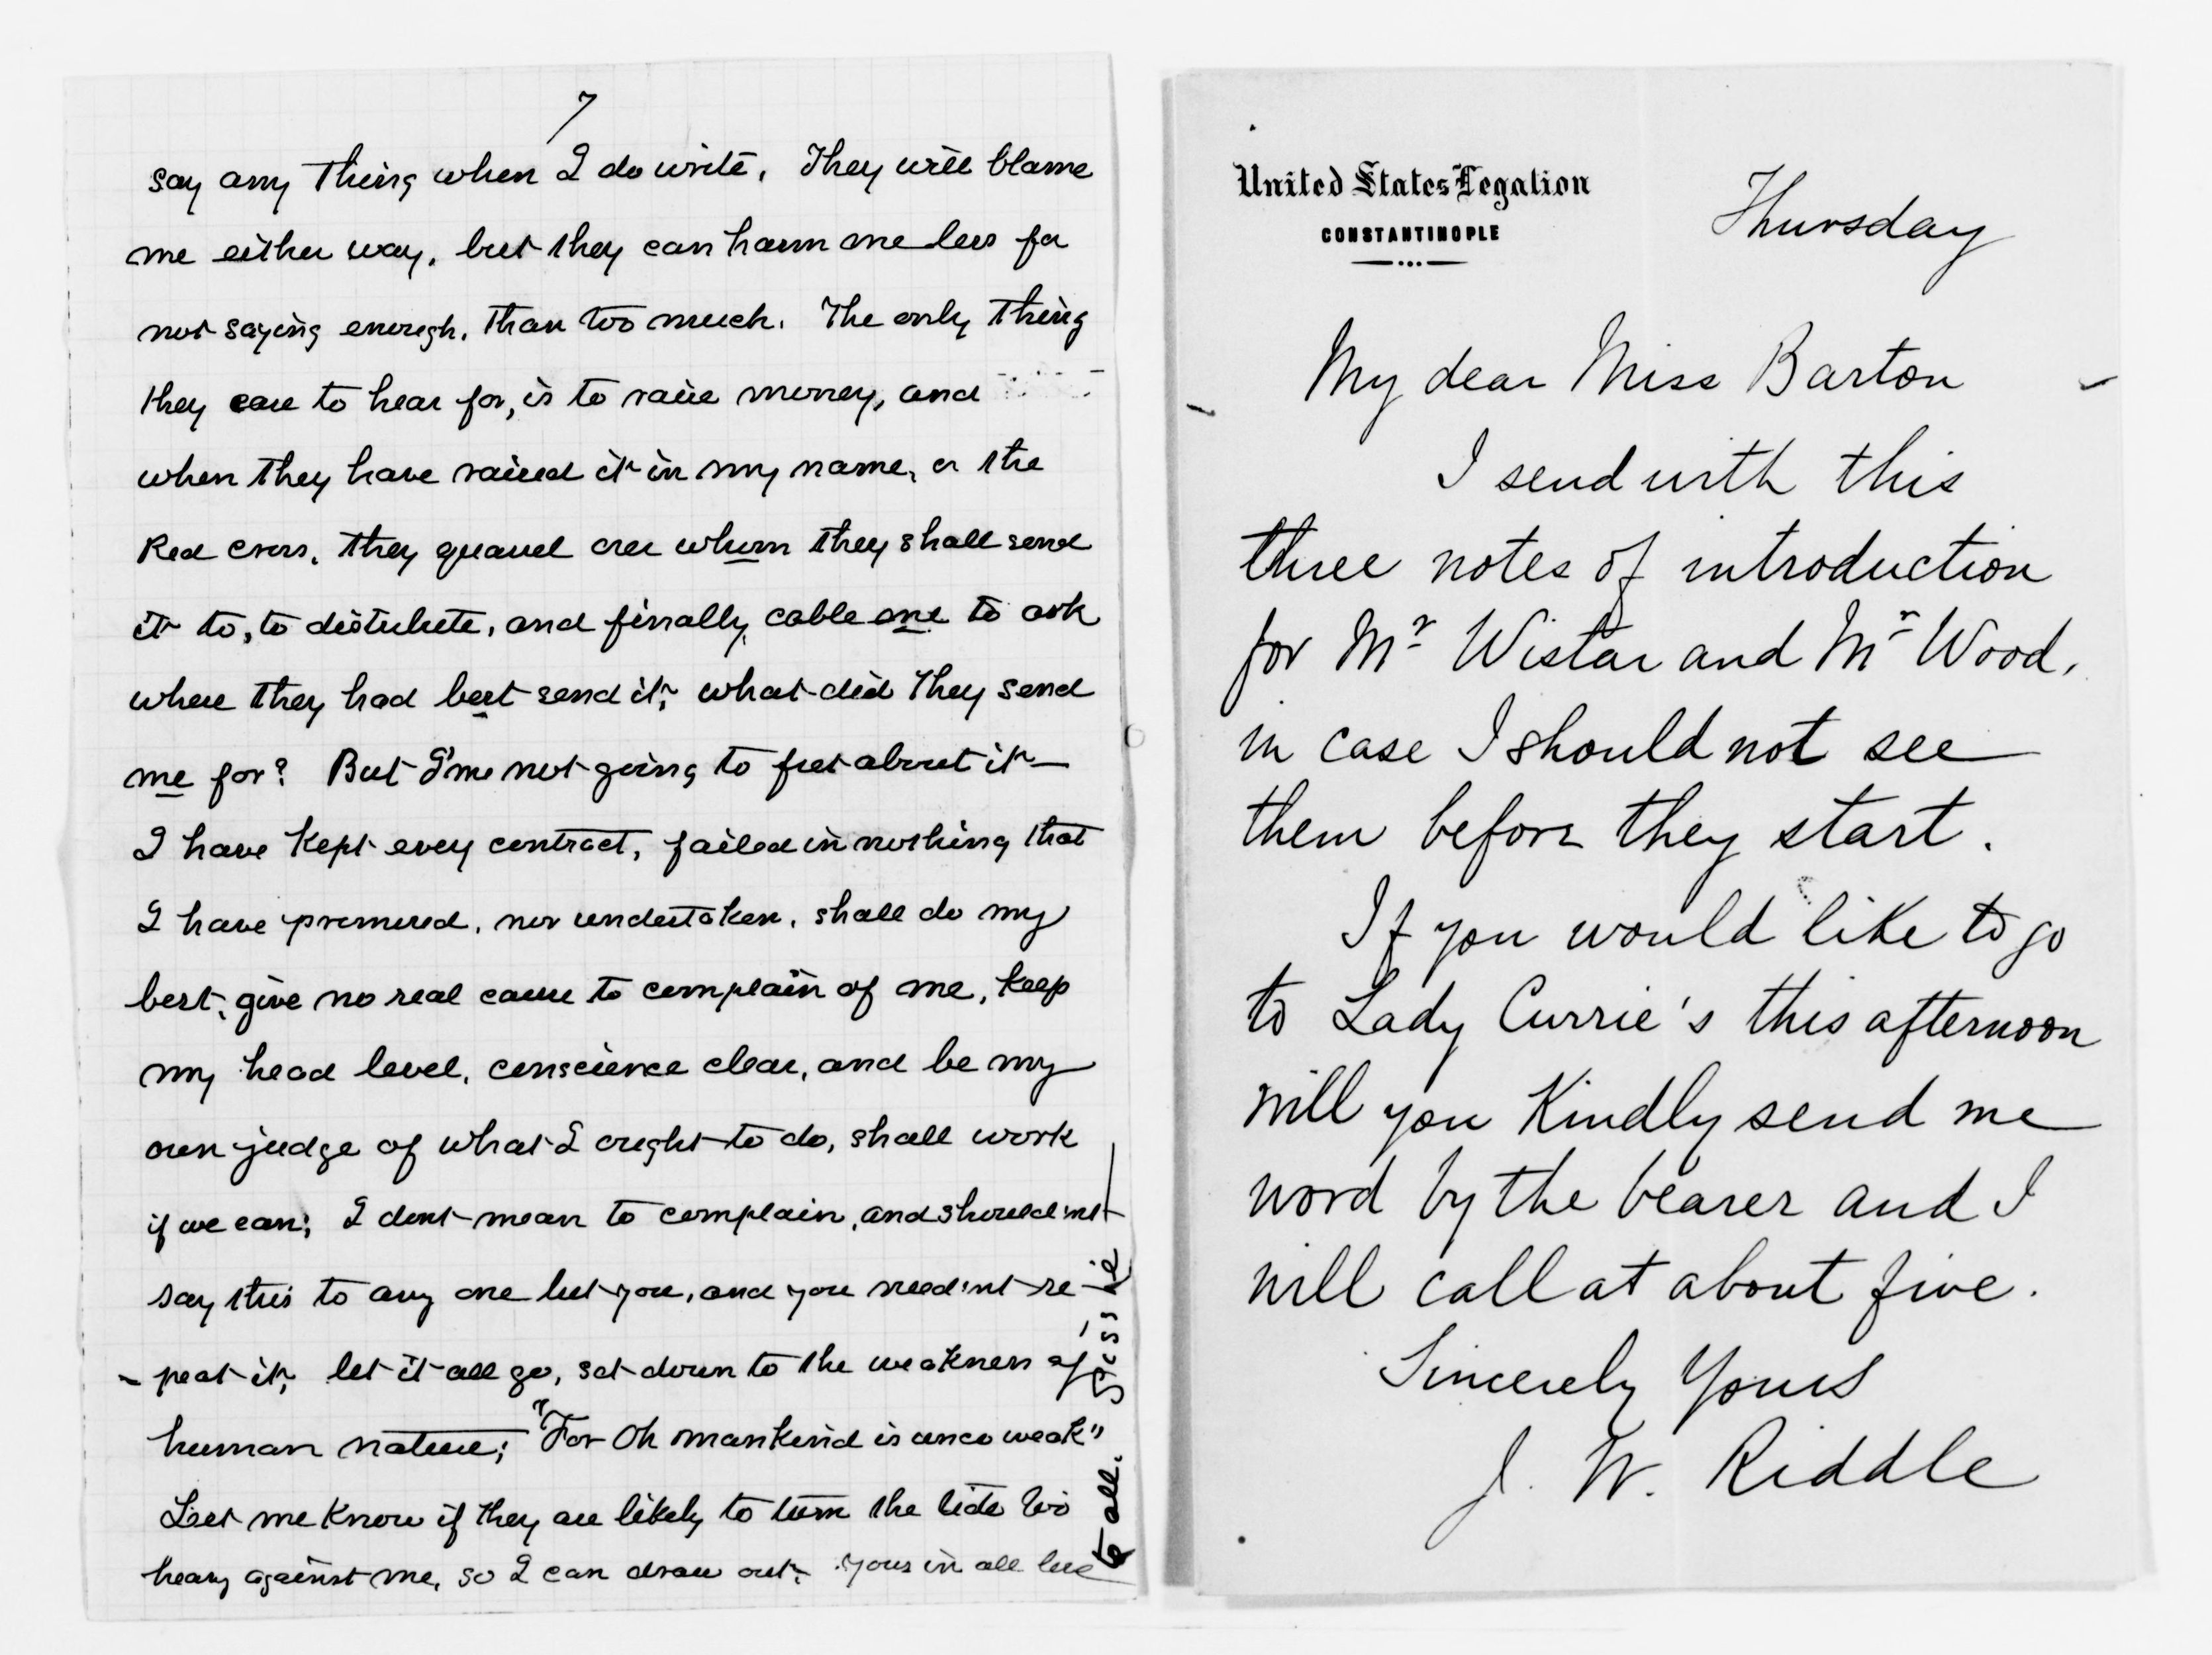 7
say any thing when I do write. They will blame
me either way, but they can harm me less for
not saying enough, than too much. The only thing
they care to hear for, is to raise money, and
when they have raised it in my name, or the
Red Cross, they quarrel over whom they shall send
it to, to distribute, and finally, cable me to ask
where they had best send it, what did they send
me for? But I'me not going to fret about it—
I have kept every contract, failed in nothing that
I have promised, nor undertaken, shall do my
best, give no real cause to complain of me, keep
my head level, conscience clear, and be my
own judge of what I ought to do, shall work
if we can; I dont mean to complain, and should'nt
say this to any one but you, and you need'nt re-
- peat it, let it all go, set down to the weakness of
human nature; "For Oh mankind is unco weak"
Let me know if they are likely to turn the tide too
heavy against me, so I can draw out. Yours in all love
to all.
United States Legation
CONSTANTINOPLE
Thursday
My dear Miss Barton
I send with this
three notes of introduction
for Mr Wistar and Mr Wood,
in case I should not see
them before they start.
If you would like to go
to Lady Currie's this afternoon
will you Kindly send me
word by the bearer and I
will call at about five.
Sincerely Yours
J. W. Riddle